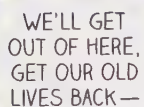 WE'LL GET
OUT OF HERE,
GET OUR OLD
LIVES BACK—